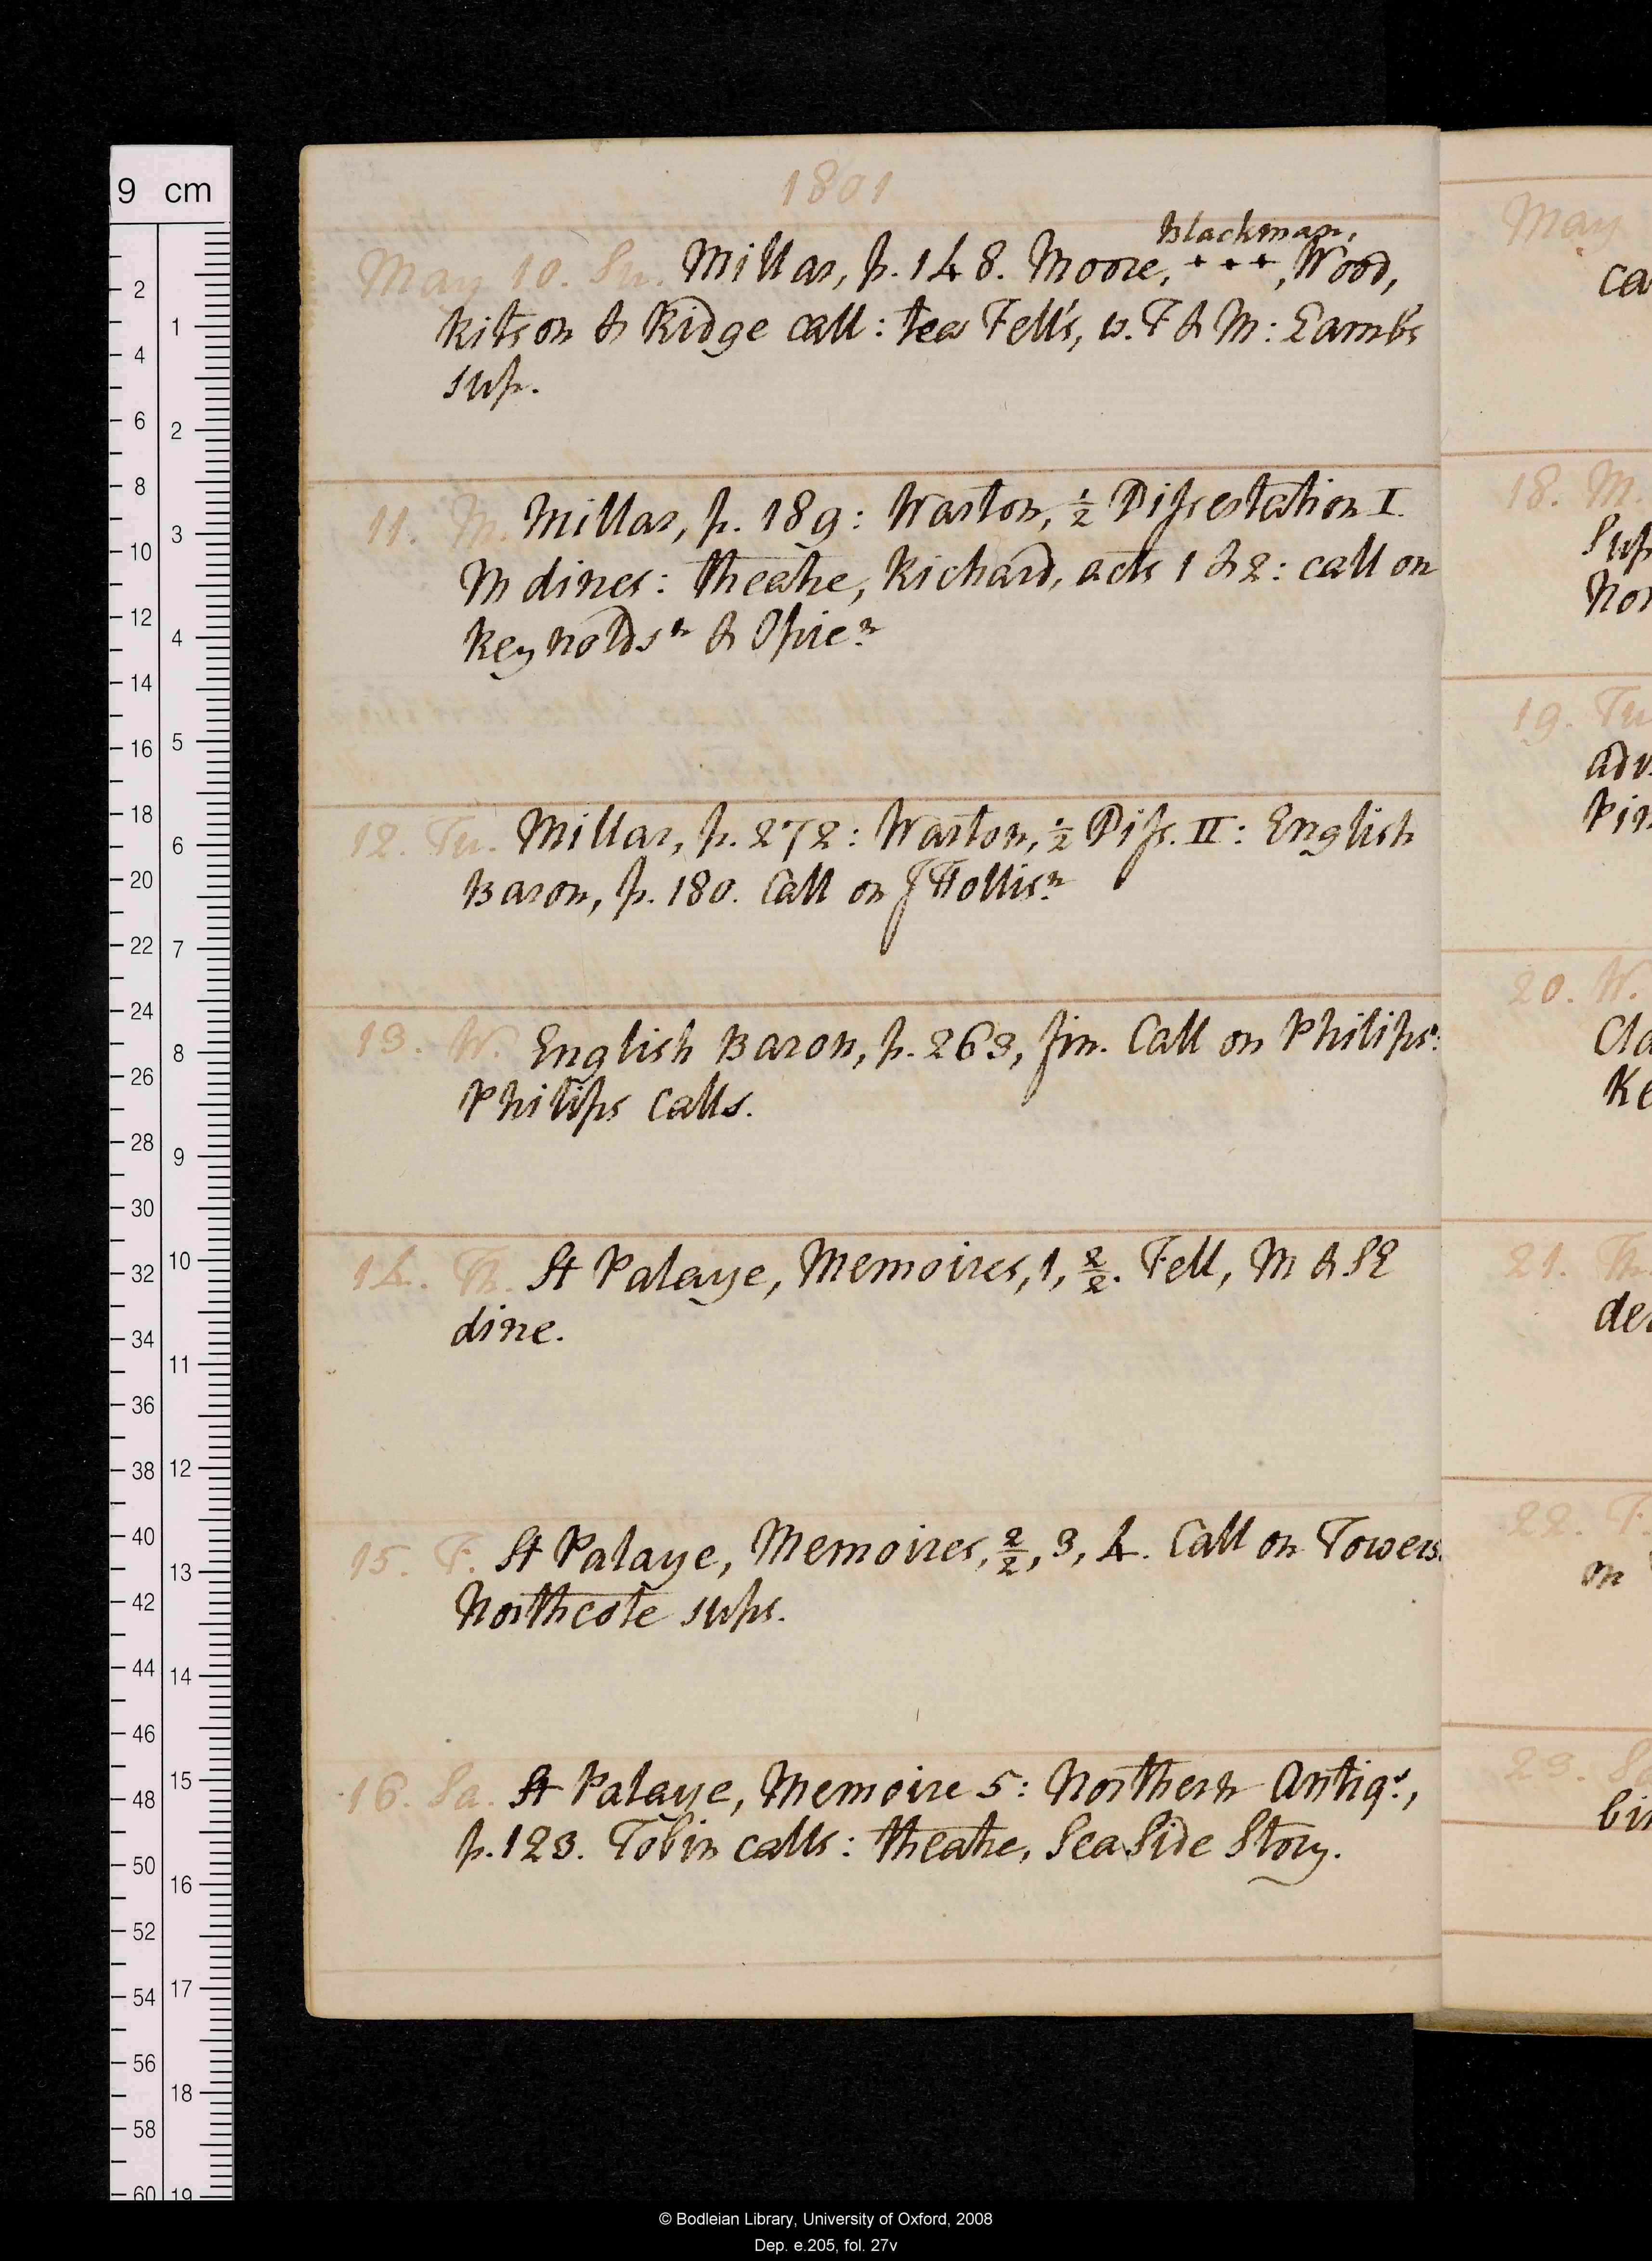 1801
Blackman,
May 10. Su. Millar, p. 148. Moore, + + +, Wood,
Ritson & Ridge call: tea Fell's, w. F & M: Lambs
sup.
11. M. Millar, p. 189: Warton, ½ Dissertation I.
M dines: theatre, Richard, acts 1 & 2: call on
Reynolds n & Opie n
12. Tu. Millar, p. 272: Warton, ½ Diss. II: English
Baron, p. 180. Call on J Hollis n
13. W. English Baron, p. 263, fin. Call on Philips:
Philips calls.
14. Th. St Palaye, Memoires, 1, 2/2. Fell, M & SE
dine.
15. F. St Palaye, Memoires, 2/2, 3, 4. Call on Towers.
Northcote sups.
16. Sa. St Palaye, Memoire 5: Northern Antiqs,
p. 123. Tobin calls: theatre, Sea Side Story.
May
ca
18. M.
Sup
Nor
19. Tu
adv
Pin
20. W.
Cla
Ke
21. Th.
der
22. F.
on
23. Sa
bin
9 cm
© Bodleian Library, University of Oxford, 2008
Dep. e.205, fol. 27v